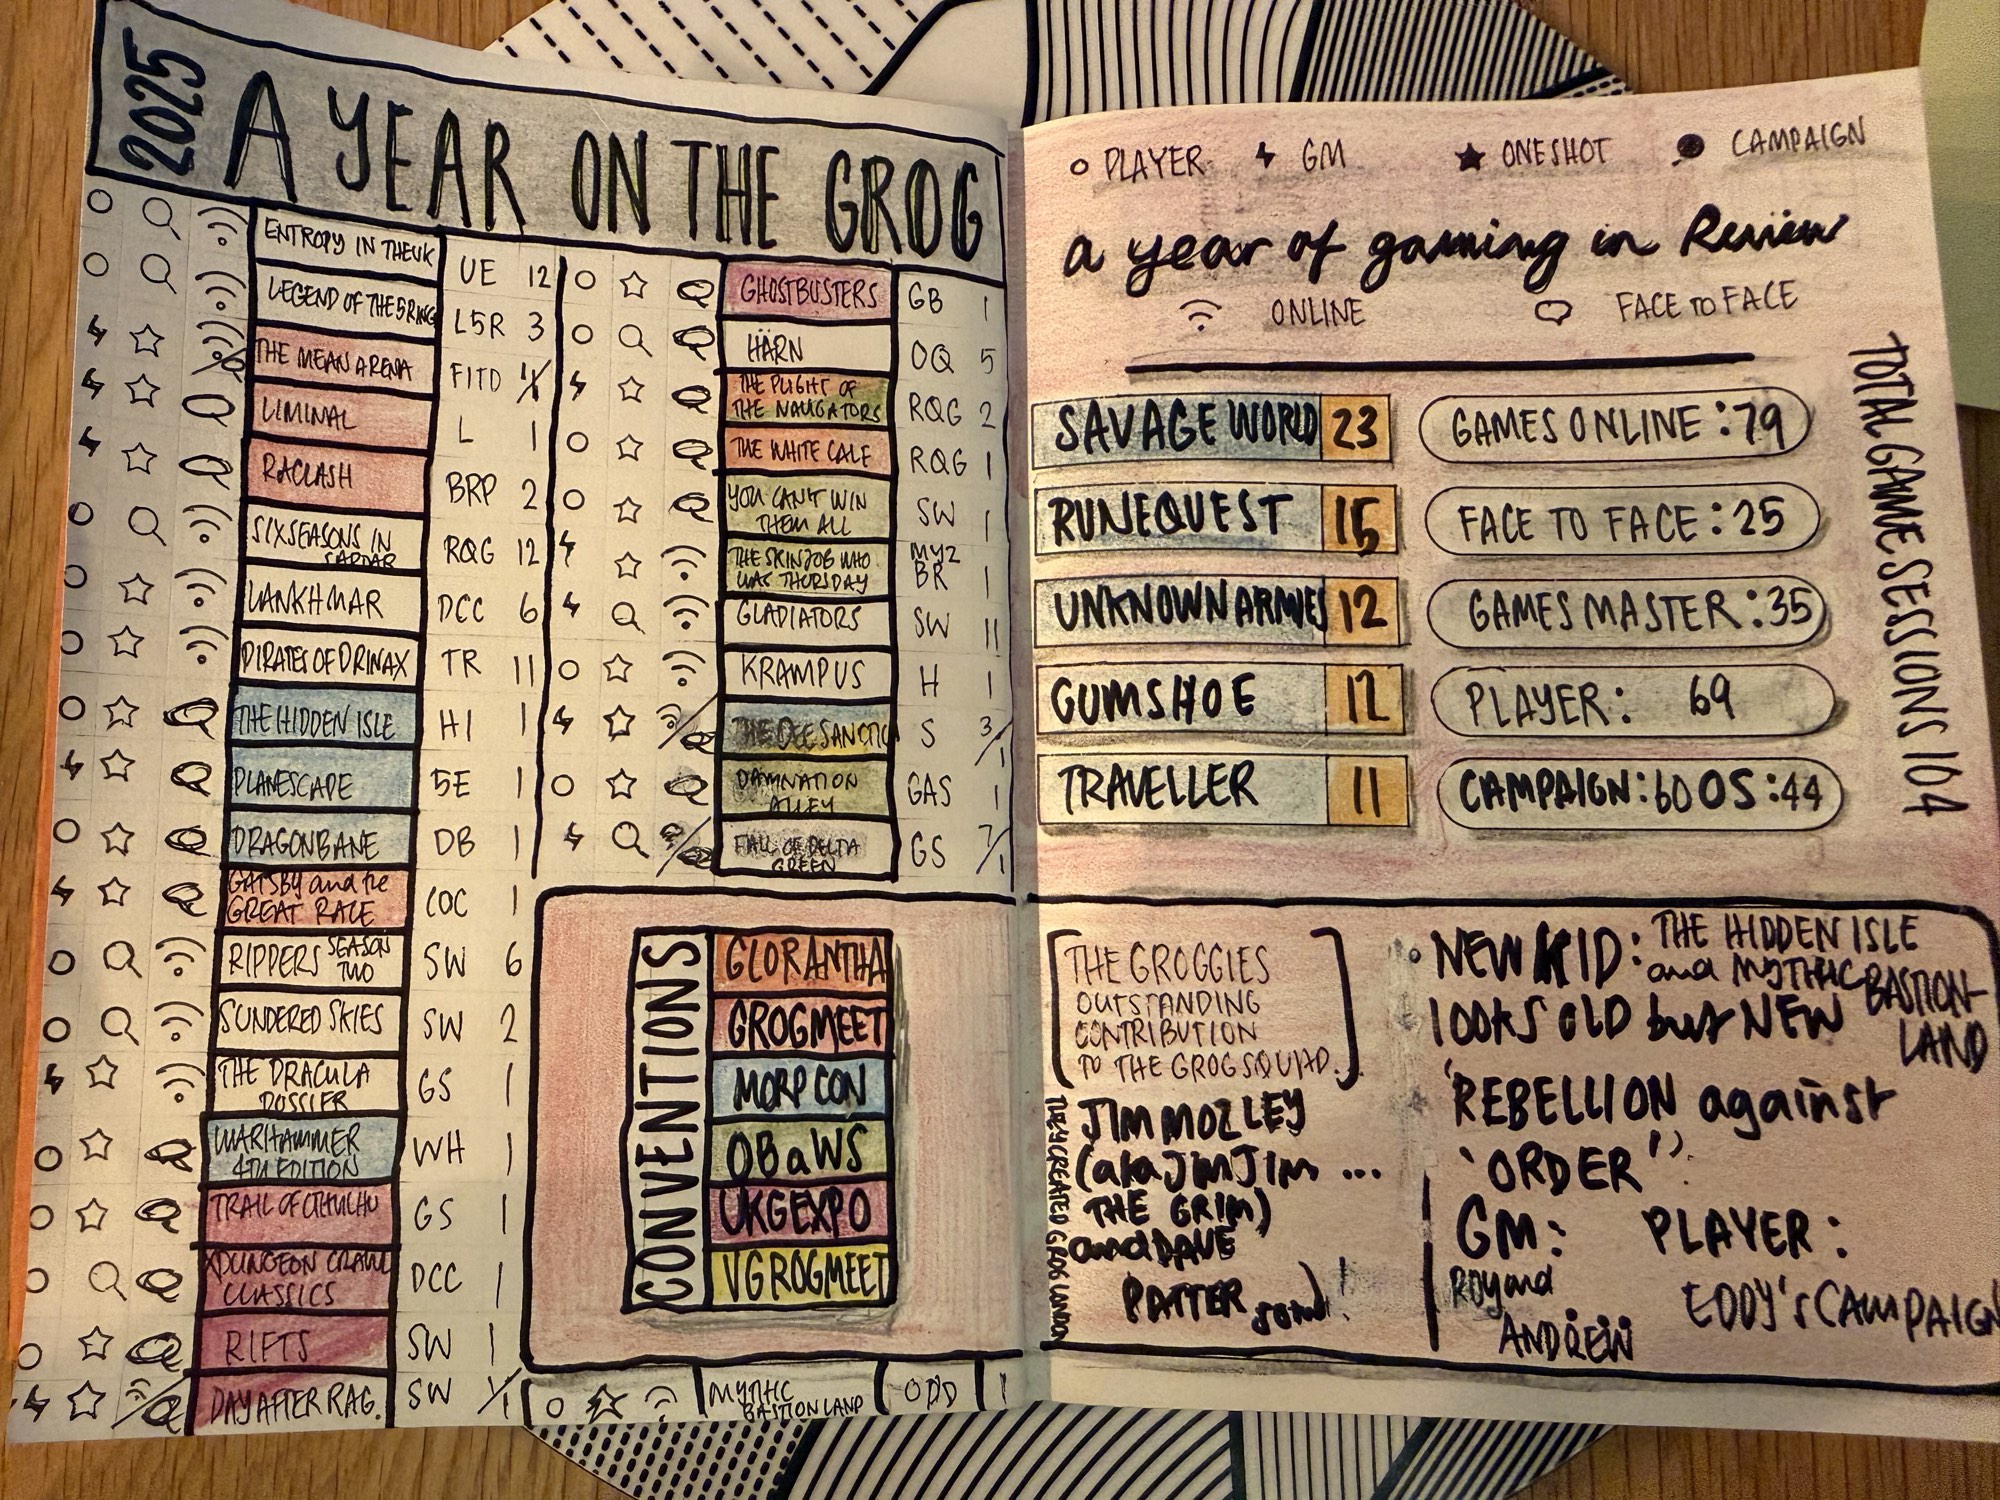 2025
A YEAR ON THE GROG
ENTROPY IN THE UK UE 12
LEGEND OF THE 5 RINGS L5R 3
THE MEAN ARENA FITD 1/1
LIMINAL L 1
RACLASH BRP 2
SIX SEASONS IN SARTAR RQG 12
LANKHMAR DCC 6
PIRATES OF DRINAX TR 11
THE HIDDEN ISLE HI 1
PLANESCAPE 5E 1
DRAGONBANE DB 1
GATSBY and the
GREAT RACE COC 1
RIPPERS SEASON TWO SW 6
SUNDERED SKIES SW 2
THE DRACULA
DOSSIER GS 1
WARHAMMER
4TH EDITION WH 1
TRAIL OF CTHULHU GS 1
XDUNGEON CRAWL
CLASSICS DCC 1
RIFTS SW 1
DAY AFTER RAG. SW 1/1
GHOSTBUSTERS GB 1
HÄRN OQ 5
THE PLIGHT OF
THE NAUGATORS RQG 2
THE WHITE CALF RQG 1
YOU CAN'T WIN
THEM ALL SW 1
THE SKINJOB WHO
WAS THURSDAY MYZ BR 1
GLADIATORS SW 11
KRAMPUS H 1
THE DEE SANCTIO S 3/1
DAMNATION
ALLEY GAS 1
FALL OF DELTA
GREEN GS 7/1
CONVENTIONS
GLORANTHA
GROGMEET
MORPCON
OBaWS
UKGEXPO
VGROGMEET
MYTHC
BASTIONLAND ODD 1
PLAYER GM ONESHOT CAMPAIGN
a year of gaming in Review
ONLINE FACE TO FACE
SAVAGE WORLD 23
RUNEQUEST 15
UNKNOWN ARMIES 12
GUMSHOE 12
TRAVELLER 11
GAMES ONLINE : 79
FACE TO FACE : 25
GAMES MASTER : 35
PLAYER : 69
CAMPAIGN : 60 OS : 44
TOTAL GAME SESSIONS 104
THE GROGGIES
OUTSTANDING
CONTRIBUTION
TO THE GROGSQUAD.
JIM MOZLEY
(aka JimJim ...
THE GRIM)
and DAVE
PATTERson!
THEY CREATED GROG LONDON
NEW KID : THE HIDDEN ISLE
and MYTHIC BASTION-
LAND
looks OLD but NEW
'REBELLION against
'ORDER'
GM:
ROY and
ANDREW
PLAYER :
EDDY'S CAMPAIGN